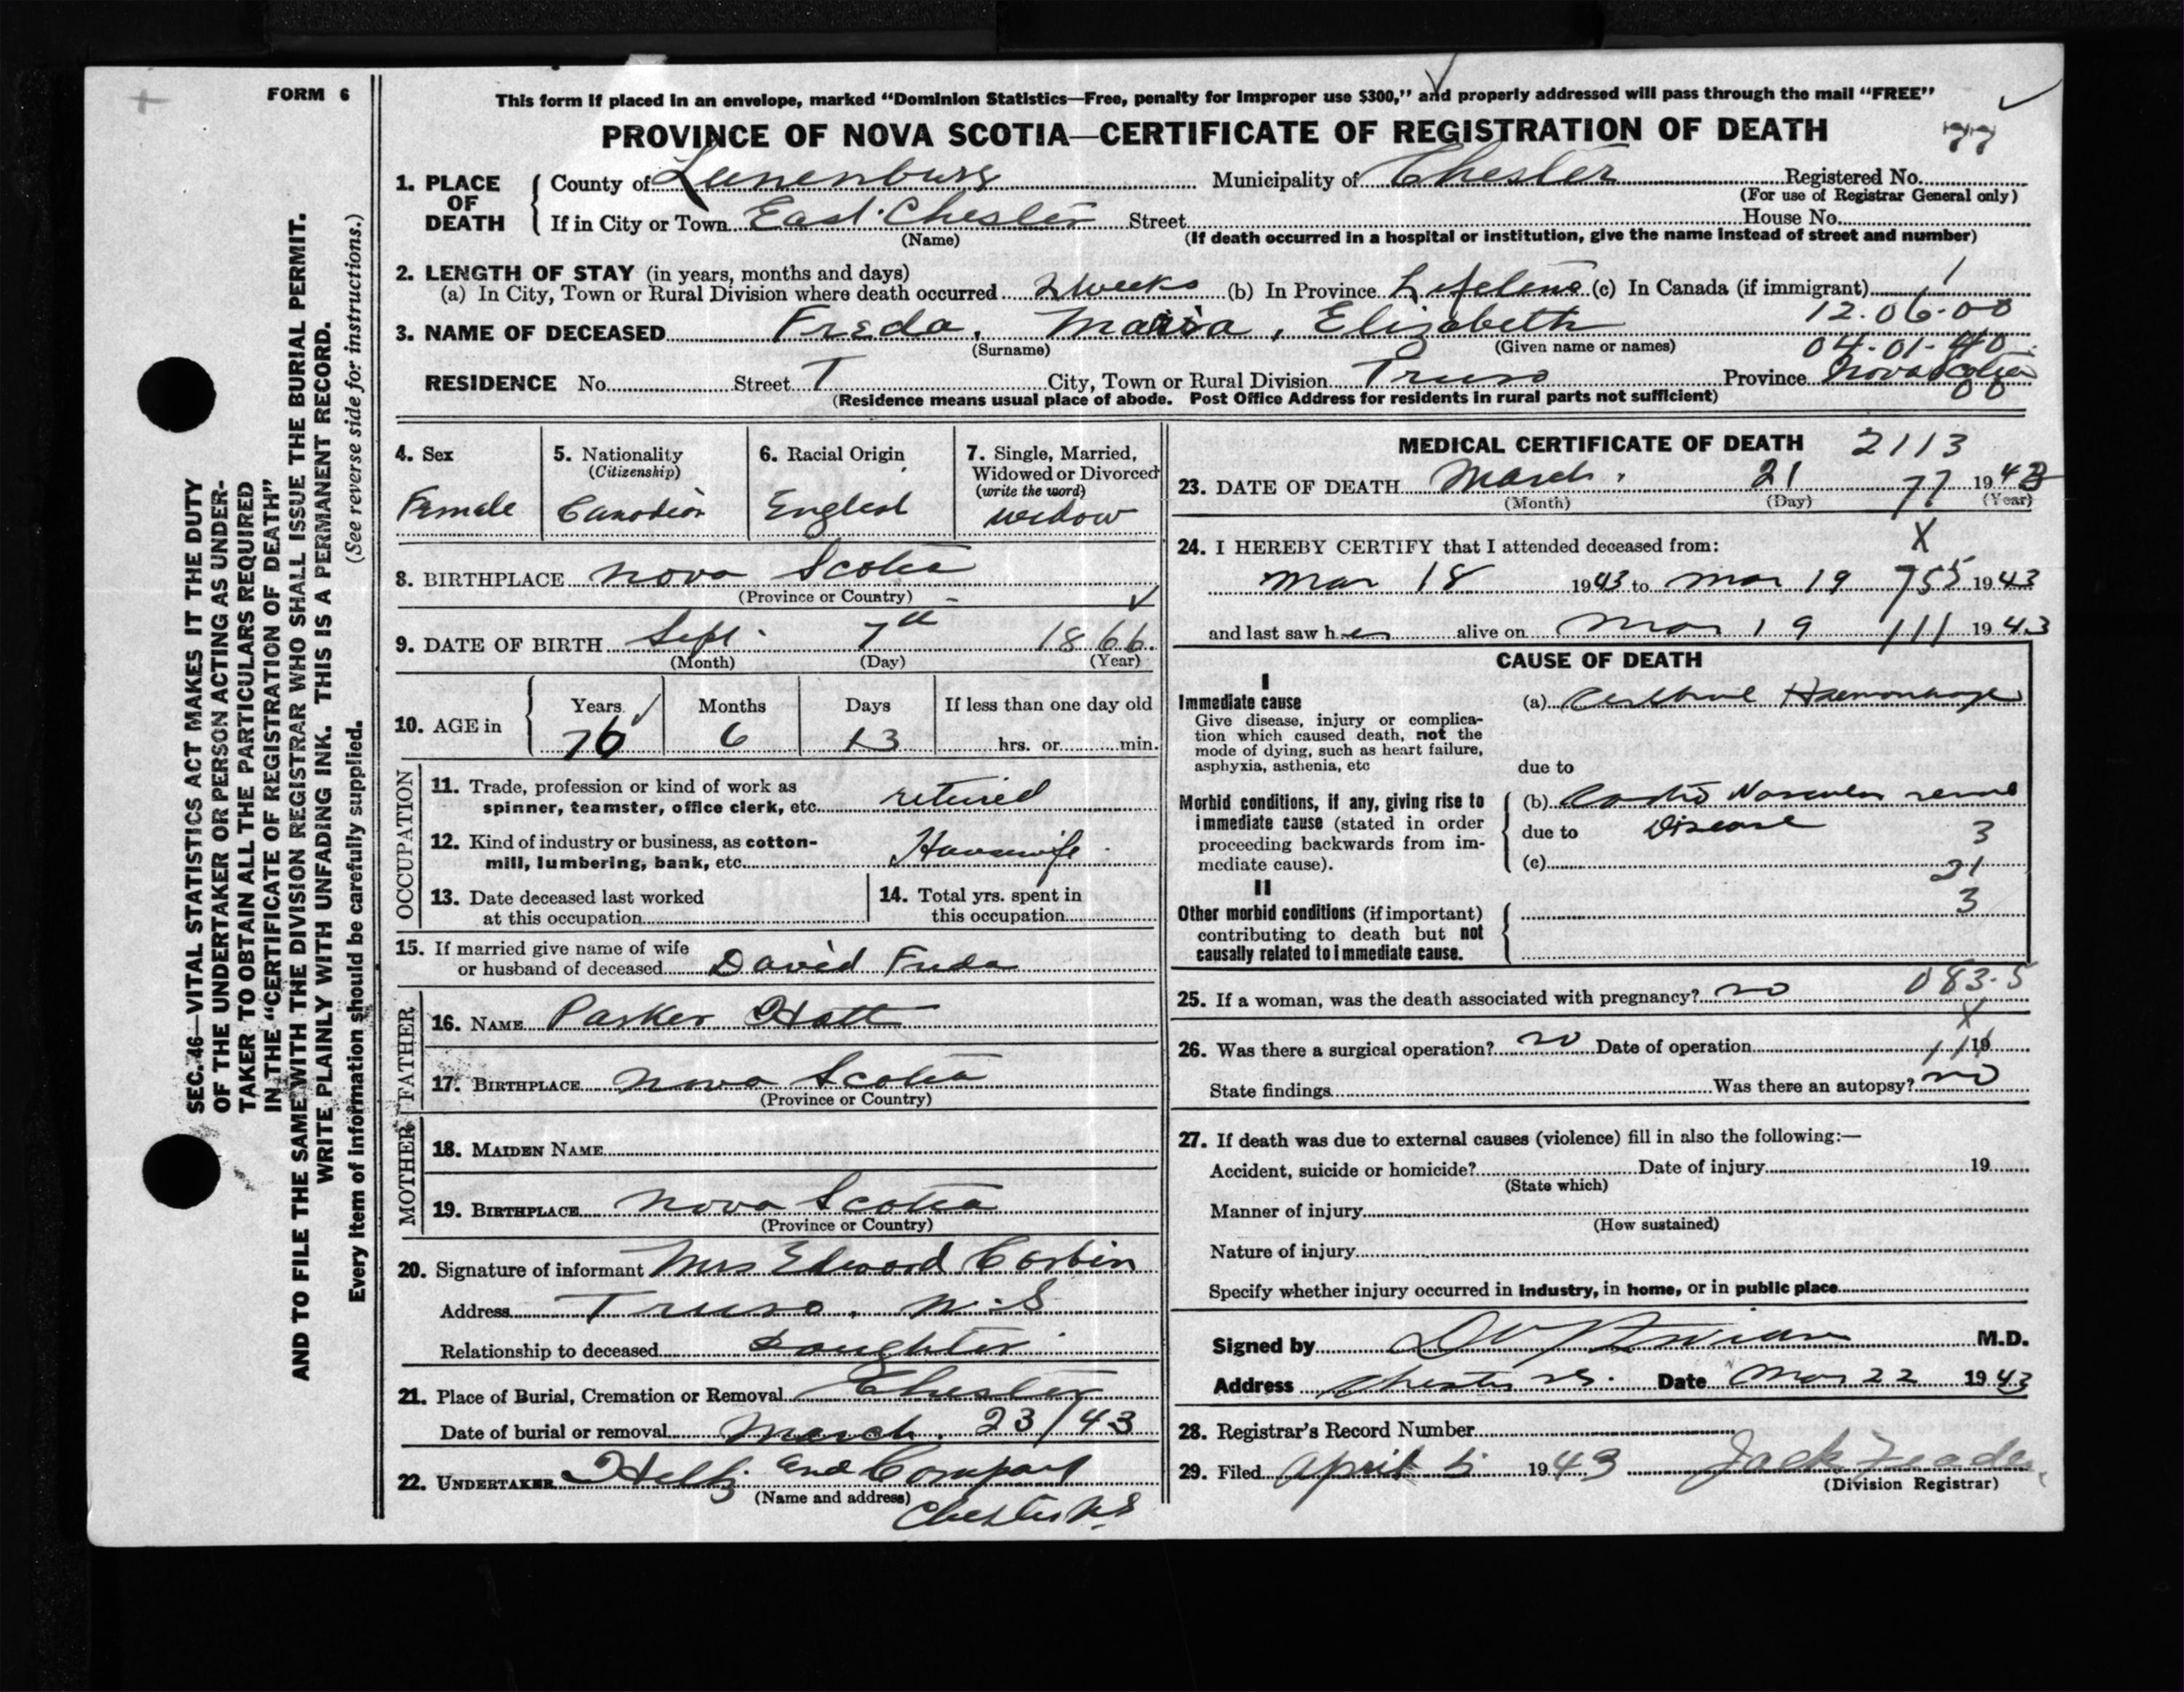 FORM 6
This form if placed in an envelope, marked "Dominion Statistics—Free, penalty for improper use $300," and properly addressed will pass through the mail "FREE"
PROVINCE OF NOVA SCOTIA—CERTIFICATE OF REGISTRATION OF DEATH
77
1. PLACE OF DEATH County of Lunenburg Municipality of Chester Registered No.
(For use of Registrar General only)
If in City or Town East Chester Street House No.
(Name) (If death occurred in a hospital or institution, give the name instead of street and number)
2. LENGTH OF STAY (in years, months and days)
(a) In City, Town or Rural Division where death occurred 2 weeks (b) In Province Lifetime (c) In Canada (if immigrant) 1
12.06.00
3. NAME OF DECEASED Freda, Maria, Elizabeth
(Surname) (Given name or names) 04-01-40
RESIDENCE No. Street T City, Town or Rural Division Truro Province Nova Scotia
(Residence means usual place of abode. Post Office Address for residents in rural parts not sufficient) 00
SEC. 46—VITAL STATISTICS ACT MAKES IT THE DUTY
OF THE UNDERTAKER OR PERSON ACTING AS UNDER-
TAKER TO OBTAIN ALL THE PARTICULARS REQUIRED
IN THE "CERTIFICATE OF REGISTRATION OF DEATH"
AND TO FILE THE SAME WITH THE DIVISION REGISTRAR WHO SHALL ISSUE THE BURIAL PERMIT.
WRITE PLAINLY WITH UNFADING INK. THIS IS A PERMANENT RECORD.
Every item of information should be carefully supplied. (See reverse side for instructions.)
4. Sex
Female
5. Nationality
(Citizenship)
Canadian
6. Racial Origin
English
7. Single, Married,
Widowed or Divorced
(write the word)
widow
8. BIRTHPLACE Nova Scotia
(Province or Country)
9. DATE OF BIRTH Sept. 7th 1866
(Month) (Day) (Year)
10. AGE in Years Months Days If less than one day old
76 6 13 hrs. or min.
OCCUPATION
11. Trade, profession or kind of work as
spinner, teamster, office clerk, etc. retired
12. Kind of industry or business, as cotton-
mill, lumbering, bank, etc. Housewife
13. Date deceased last worked
at this occupation
14. Total yrs. spent in
this occupation
15. If married give name of wife
or husband of deceased David Freda
FATHER
16. NAME Parker Hatt
17. BIRTHPLACE Nova Scotia
(Province or Country)
MOTHER
18. MAIDEN NAME
19. BIRTHPLACE Nova Scotia
(Province or Country)
20. Signature of informant Mrs Edward Corbin
Address Truro, N.S
Relationship to deceased Daughter
21. Place of Burial, Cremation or Removal Chester
Date of burial or removal March. 23/43
22. UNDERTAKER and Company
(Name and address)
Chester NS
MEDICAL CERTIFICATE OF DEATH 2113
23. DATE OF DEATH March 21 77 1943
(Month) (Day) (Year)
24. I HEREBY CERTIFY that I attended deceased from: X
Mar 18 1943 to Mar 19 755 1943
and last saw her alive on Mar 19 111 1943
CAUSE OF DEATH
I
Immediate cause
Give disease, injury or complica-
tion which caused death, not the
mode of dying, such as heart failure,
asphyxia, asthenia, etc
(a) Cerebral Haemorrhage
due to
Morbid conditions, if any, giving rise to
immediate cause (stated in order
proceeding backwards from im-
mediate cause).
(b) Cardio Vascular renal
due to Disease 3
(c)
31
II
Other morbid conditions (if important)
contributing to death but not
causally related to immediate cause.
3
083.5
25. If a woman, was the death associated with pregnancy? no
X
26. Was there a surgical operation? no Date of operation 19
State findings Was there an autopsy? no
27. If death was due to external causes (violence) fill in also the following:—
Accident, suicide or homicide? Date of injury 19
(State which)
Manner of injury
(How sustained)
Nature of injury
Specify whether injury occurred in industry, in home, or in public place
Signed by M.D.
Address Chester NS. Date Mar 22 1943
28. Registrar's Record Number
29. Filed April 5 1943 Jack
(Division Registrar)